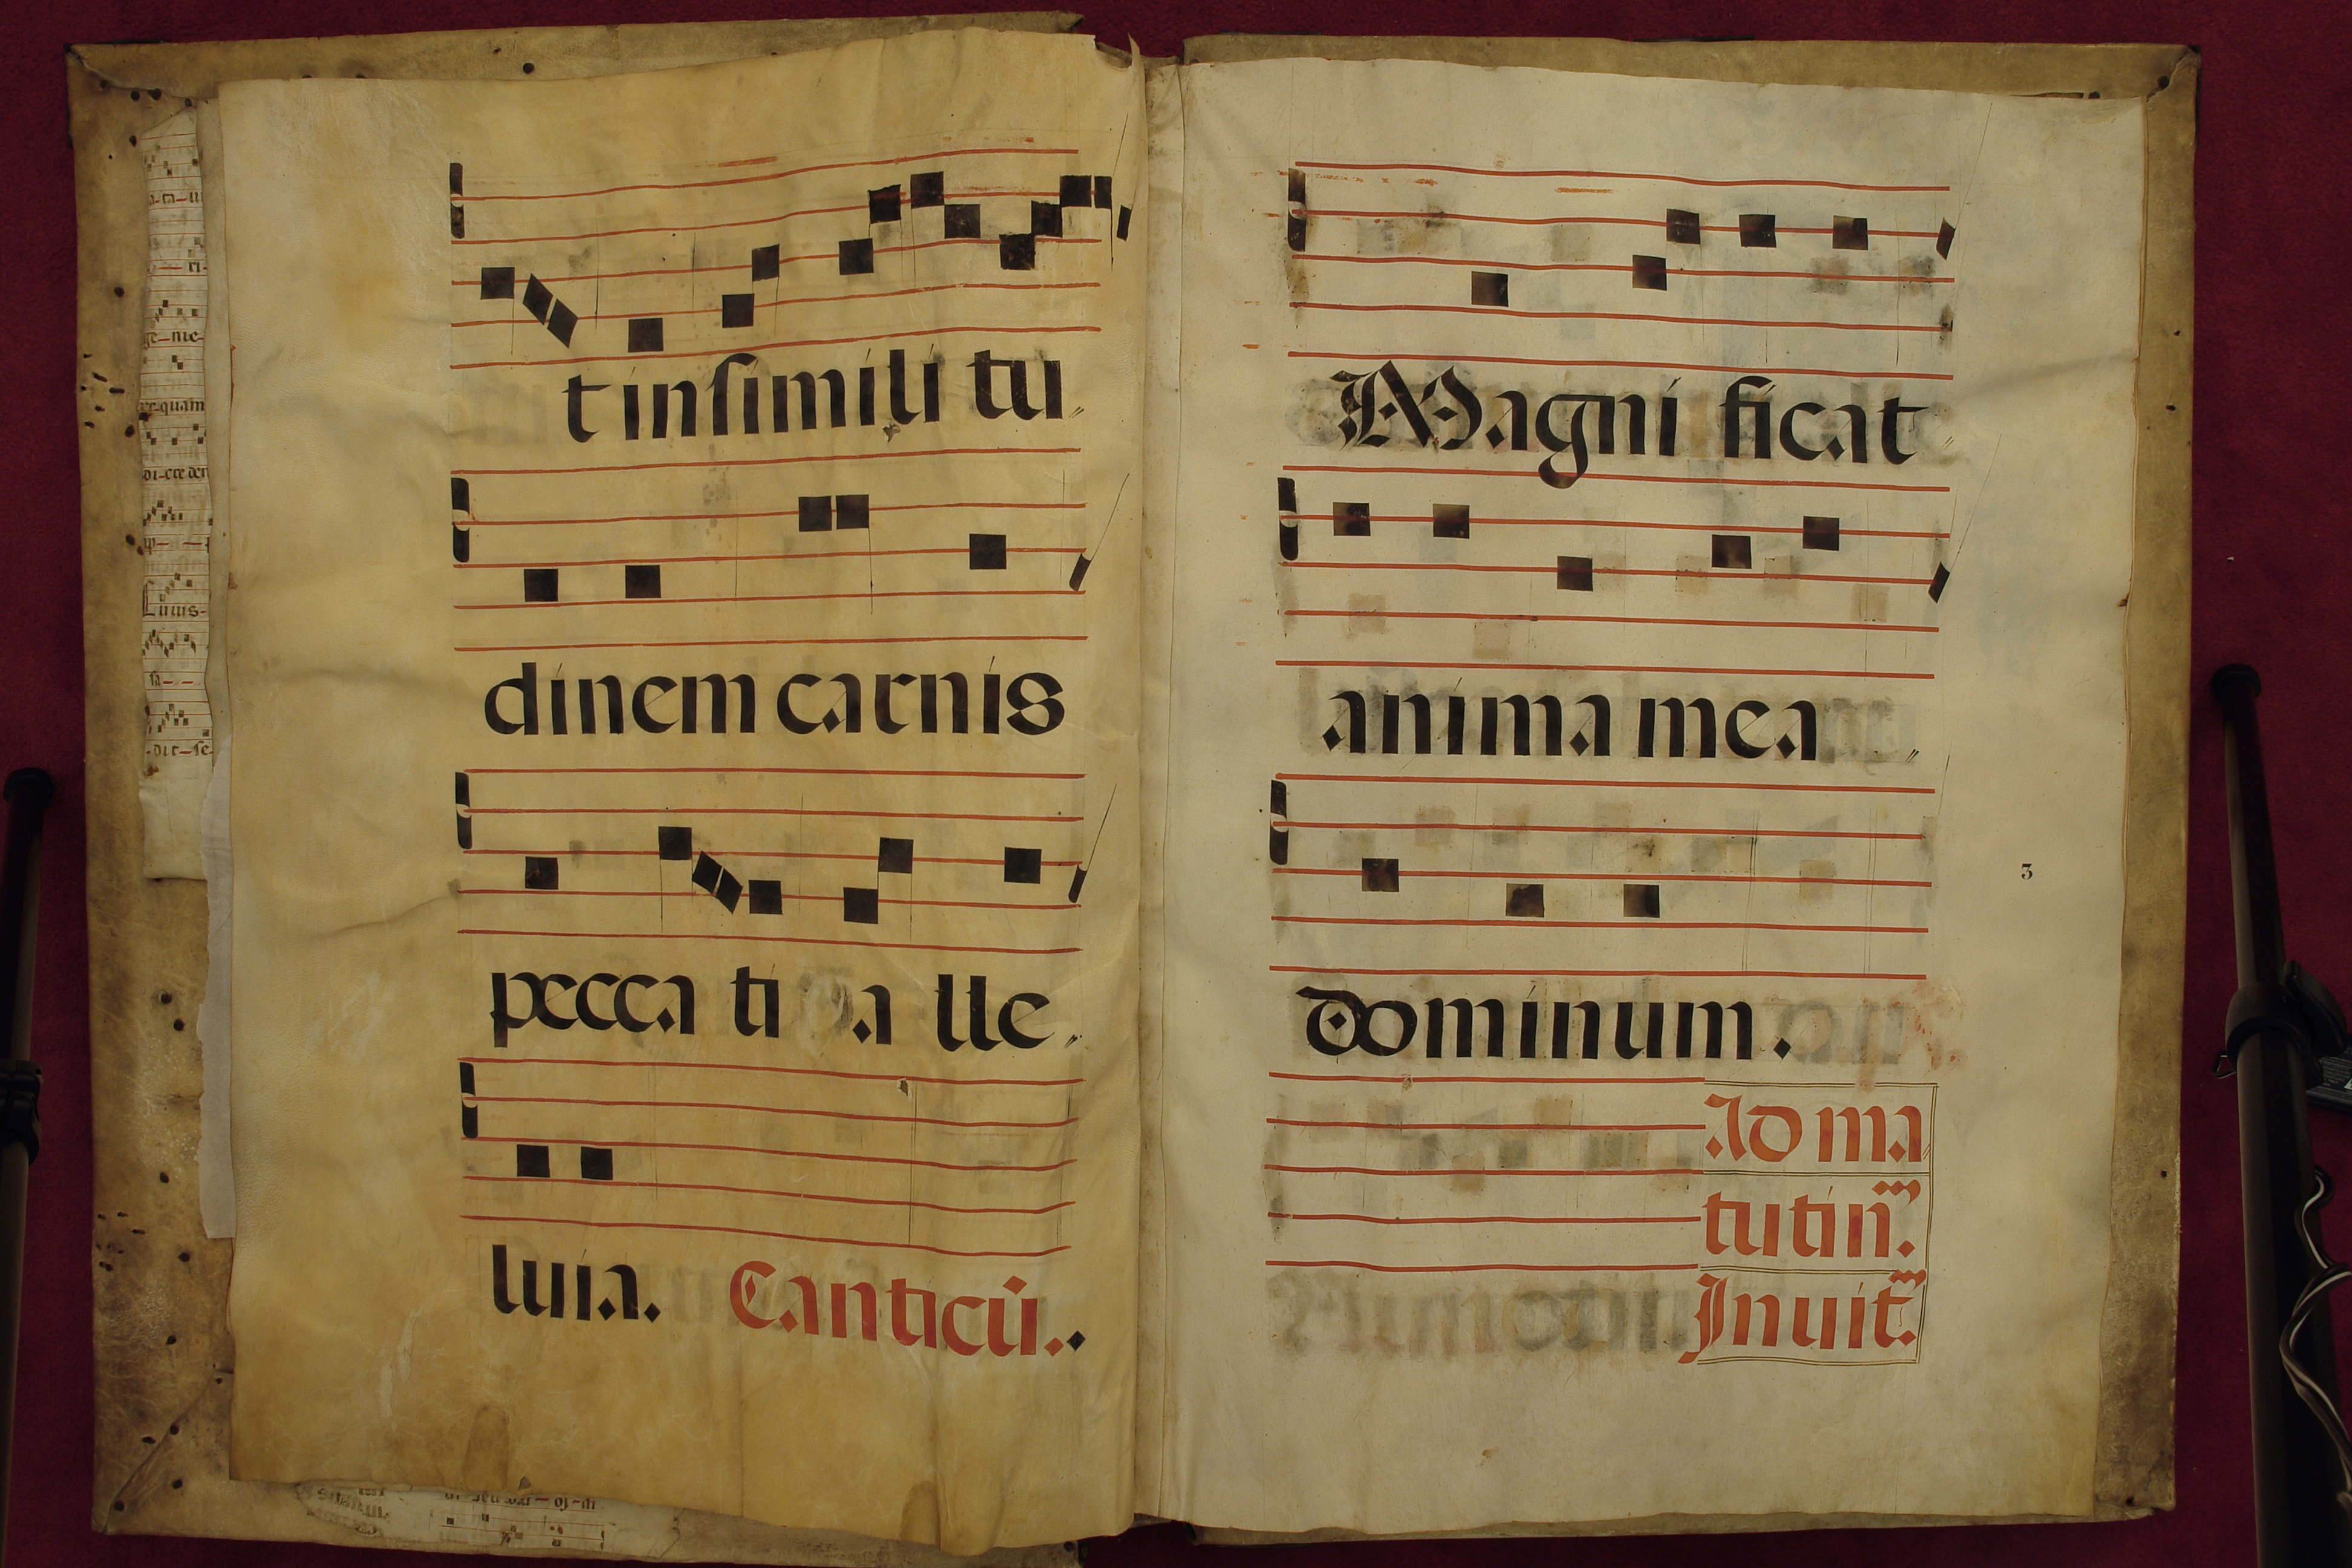 t in simili tu
dinem carnis
pecca ti a lle
luia. Canticū.
Magni ficat
anima mea
3
dominum.
Ad ma
tutin.
Inuit.